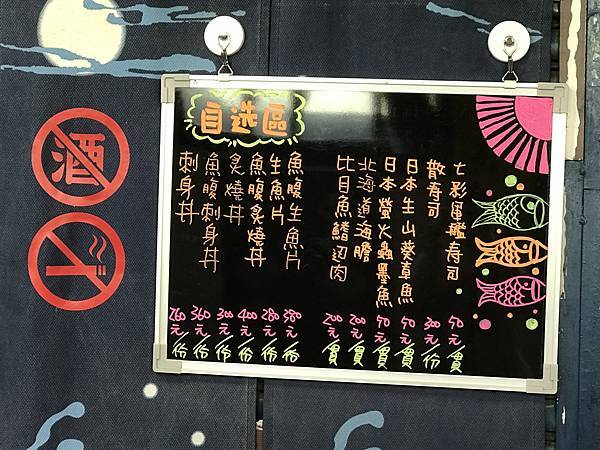 酒
自选區
七彩軍艦壽司 50元/貫
散壽司 300元/份
日本生山葵章魚 90元/貫
日本螢火蟲墨魚 90元/貫
北海道海膽 200元/貫
比目魚鰭边肉 200元/貫
魚腹生魚片 380元/份
生魚片 280元/份
魚腹炙燒丼 400元/份
炙燒丼 300元/份
魚腹刺身丼 360元/份
刺身丼 260元/份